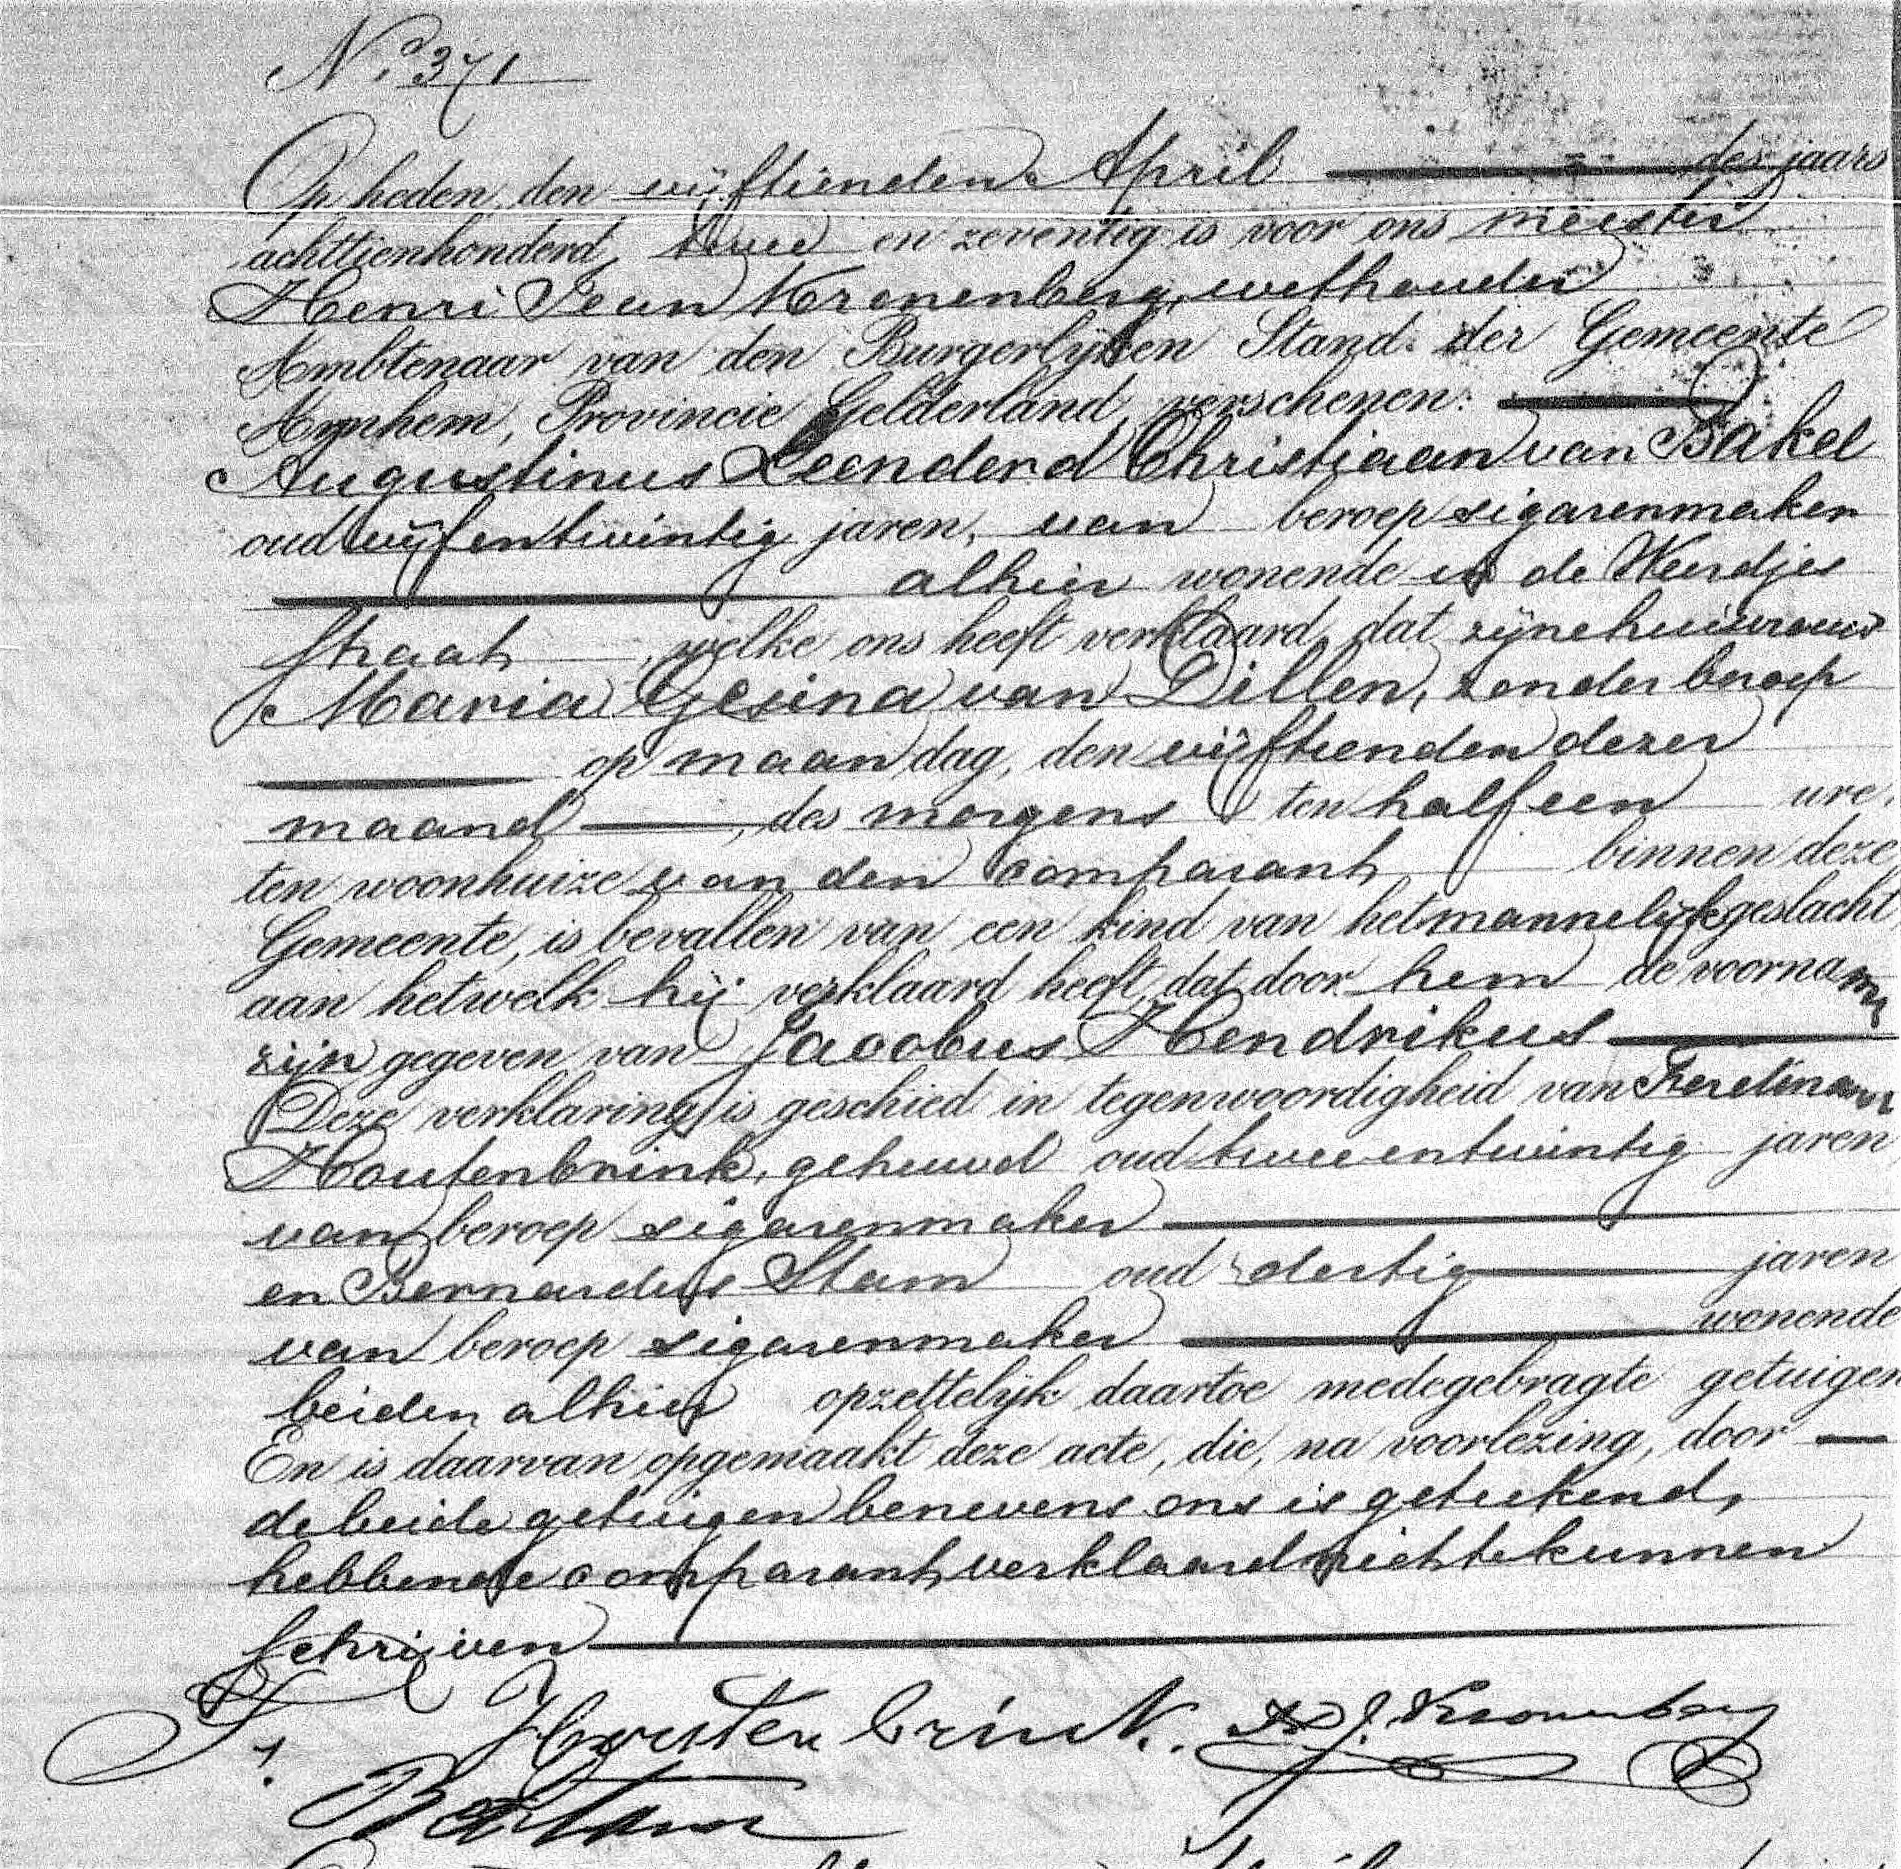 No. 371
Op heden den vijftienden April des jaars
achttienhonderd twee en zeventig is voor ons meester
Henri Jean Kronenberg, wethouder
Ambtenaar van den Burgerlijken Stand der Gemeente
Arnhem, Provincie Gelderland, verschenen:
Augustinus Leenderd Christiaan van Bakel
oud vijfentwintig jaren, van beroep sigarenmaker
alhier wonende in de Weerdjes
straat, welke ons heeft verklaard, dat zijne huisvrouw
Maria Gesina van Dillen, zonder beroep
op maandag, den vijftienden dezer
maand, des morgens ten half een ure,
ten woonhuize van den comparant binnen deze
Gemeente, is bevallen van een kind van het mannelijk geslacht,
aan hetwelk hij verklaard heeft, dat door hem de voornamen
zijn gegeven van Jacobus Hendrikus
Deze verklaring is geschied in tegenwoordigheid van Ferdinand
Houtenbrink, gehuwd oud twee entwintig jaren,
van beroep sigarenmaker
en Bernardus Stam oud dertig jaren
van beroep sigarenmaker wonende
beiden alhier opzettelijk daartoe medegebragte getuigen
En is daarvan opgemaakt deze acte, die, na voorlezing, door
de beide getuigen benevens ons is geteekend,
hebbende comparant verklaard niet te kunnen
schrijven
F. Houtenbrink. H J. Kronenberg
B Stam